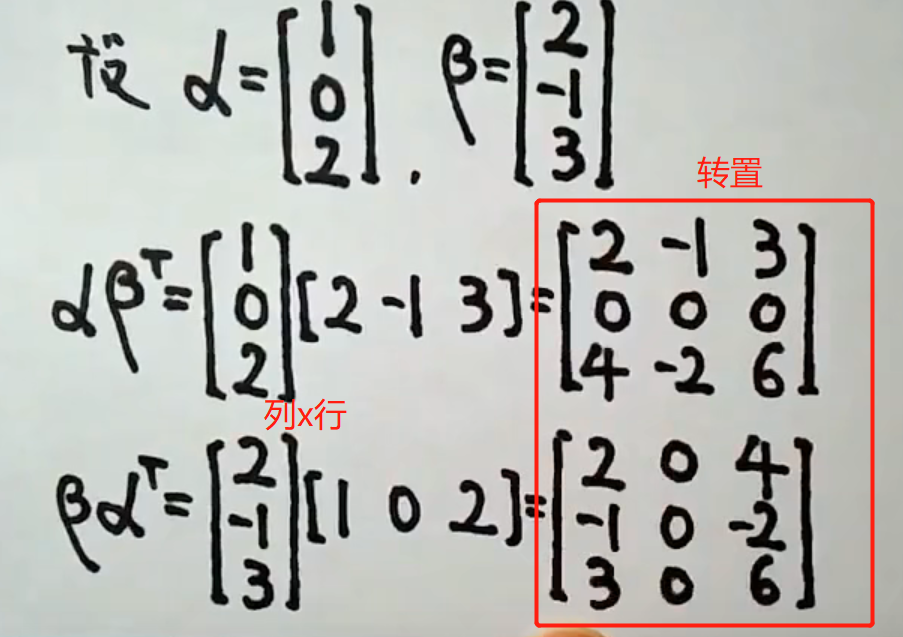 设 α = [1 0 2] , β = [2 -1 3]
转置
αβᵀ = [1 0 2] [2 -1 3] = [2 -1 3 0 0 0 4 -2 6]
列x行
βαᵀ = [2 -1 3] [1 0 2] = [2 0 4 -1 0 -2 3 0 6]